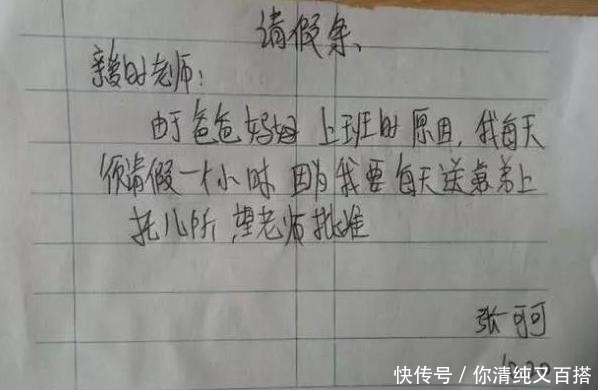 请假条、
亲爱的老师：
由于爸爸妈妈上班的原因，我每天
须请假一个小时 因为我要每天送弟弟上
托儿所，望老师批准
张可可
快传号 / 你清纯又百搭